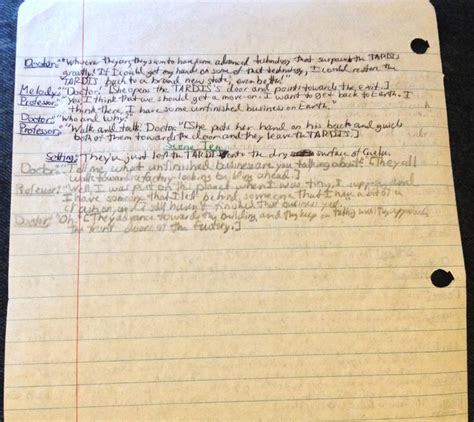 Doctor: "Whoever they are, they seem to have some advanced technology that surpasses the TARDIS
greatly! If I could get my hands on some of that technology, I could restore the
TARDIS back to a brand new state, even better!"
Melody: "Doctor." [She opens the TARDIS's door and points towards the exit.]
Professor: "You, I think that we should get a move-on. I want to get back to Earth. I
think there, I have some unfinished business on Earth."
Doctor: "Who and why?"
Professor: "Walk and talk, Doctor." [She puts her hand on his back and guides
both of them towards the door and they leave the TARDIS.]
Scene Ten
Setting: They've just left the TARDIS onto the dry surface of
Doctor: "Tell me, what unfinished business are you talking about?" [They still
walk towards a factory looking building ahead.]
Professor: "Well, I was put on this planet when I was tiny, I suppose and
I have someone that I left behind someone that I have a bit of a
crush on, and I still haven't finished that business yet.
Doctor: "Oh." [They advance towards the building and they keep on talking until they approach
the front doors of the factory.]